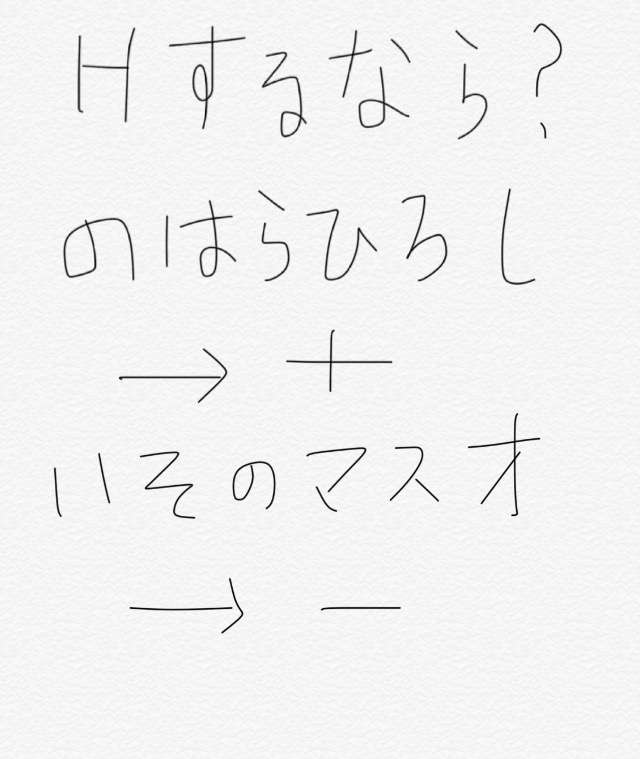 Hするなら?
のはらひろし
→ +
いそのマスオ
→ −